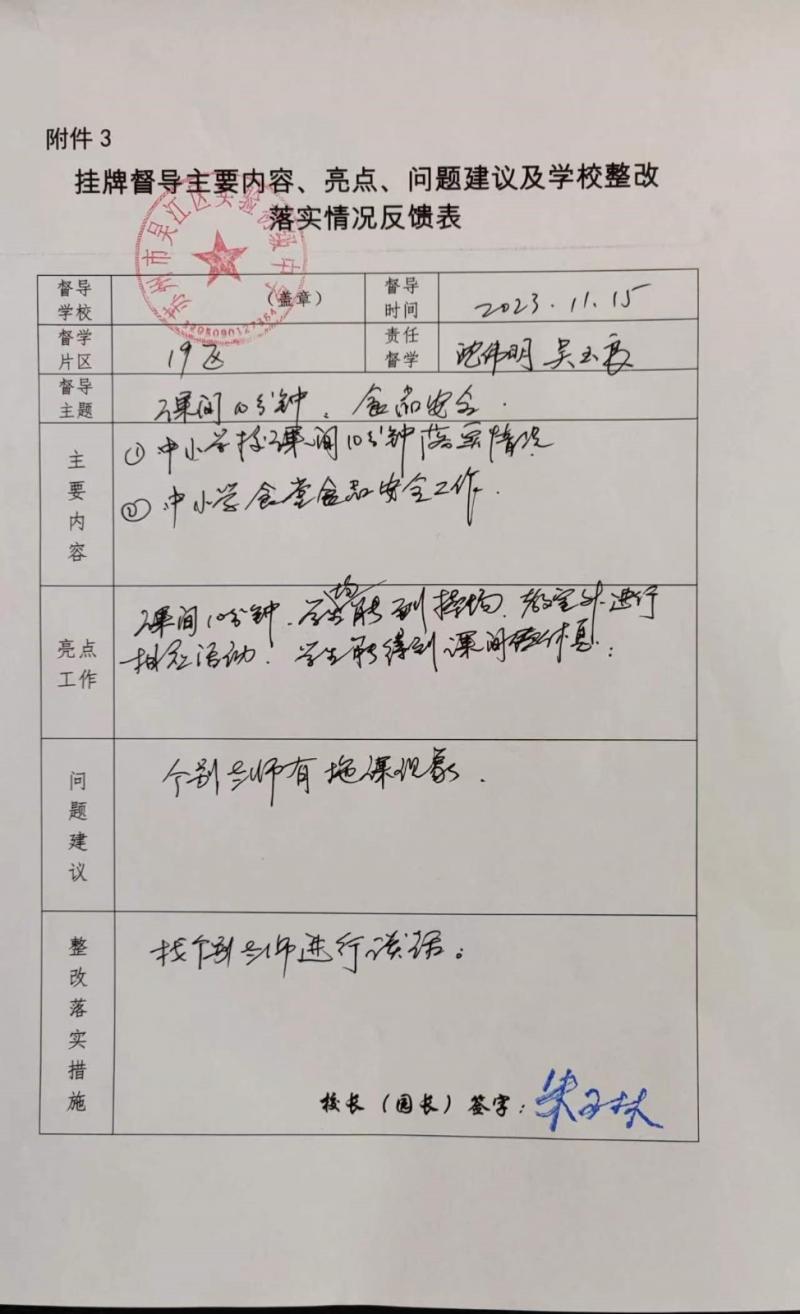 附件 3
挂牌督导主要内容、亮点、问题建议及学校整改
落实情况反馈表
苏州市吴江区实验初级中学
3205090127364
督导学校
（盖章）
督导时间
2023.11.15
督学片区
19区
责任督学
沈伟明 吴玉良
督导主题
课间10分钟、食品安全.
主要内容
① 中小学校课间10分钟落实情况
② 中小学食堂食品安全工作.
亮点工作
课间10分钟.学生均能到操场、教室外进行
相应活动.学生能得到课间休息;
问题建议
个别老师有拖课现象.
整改落实措施
找个别老师进行谈话。
校长（园长）签字：